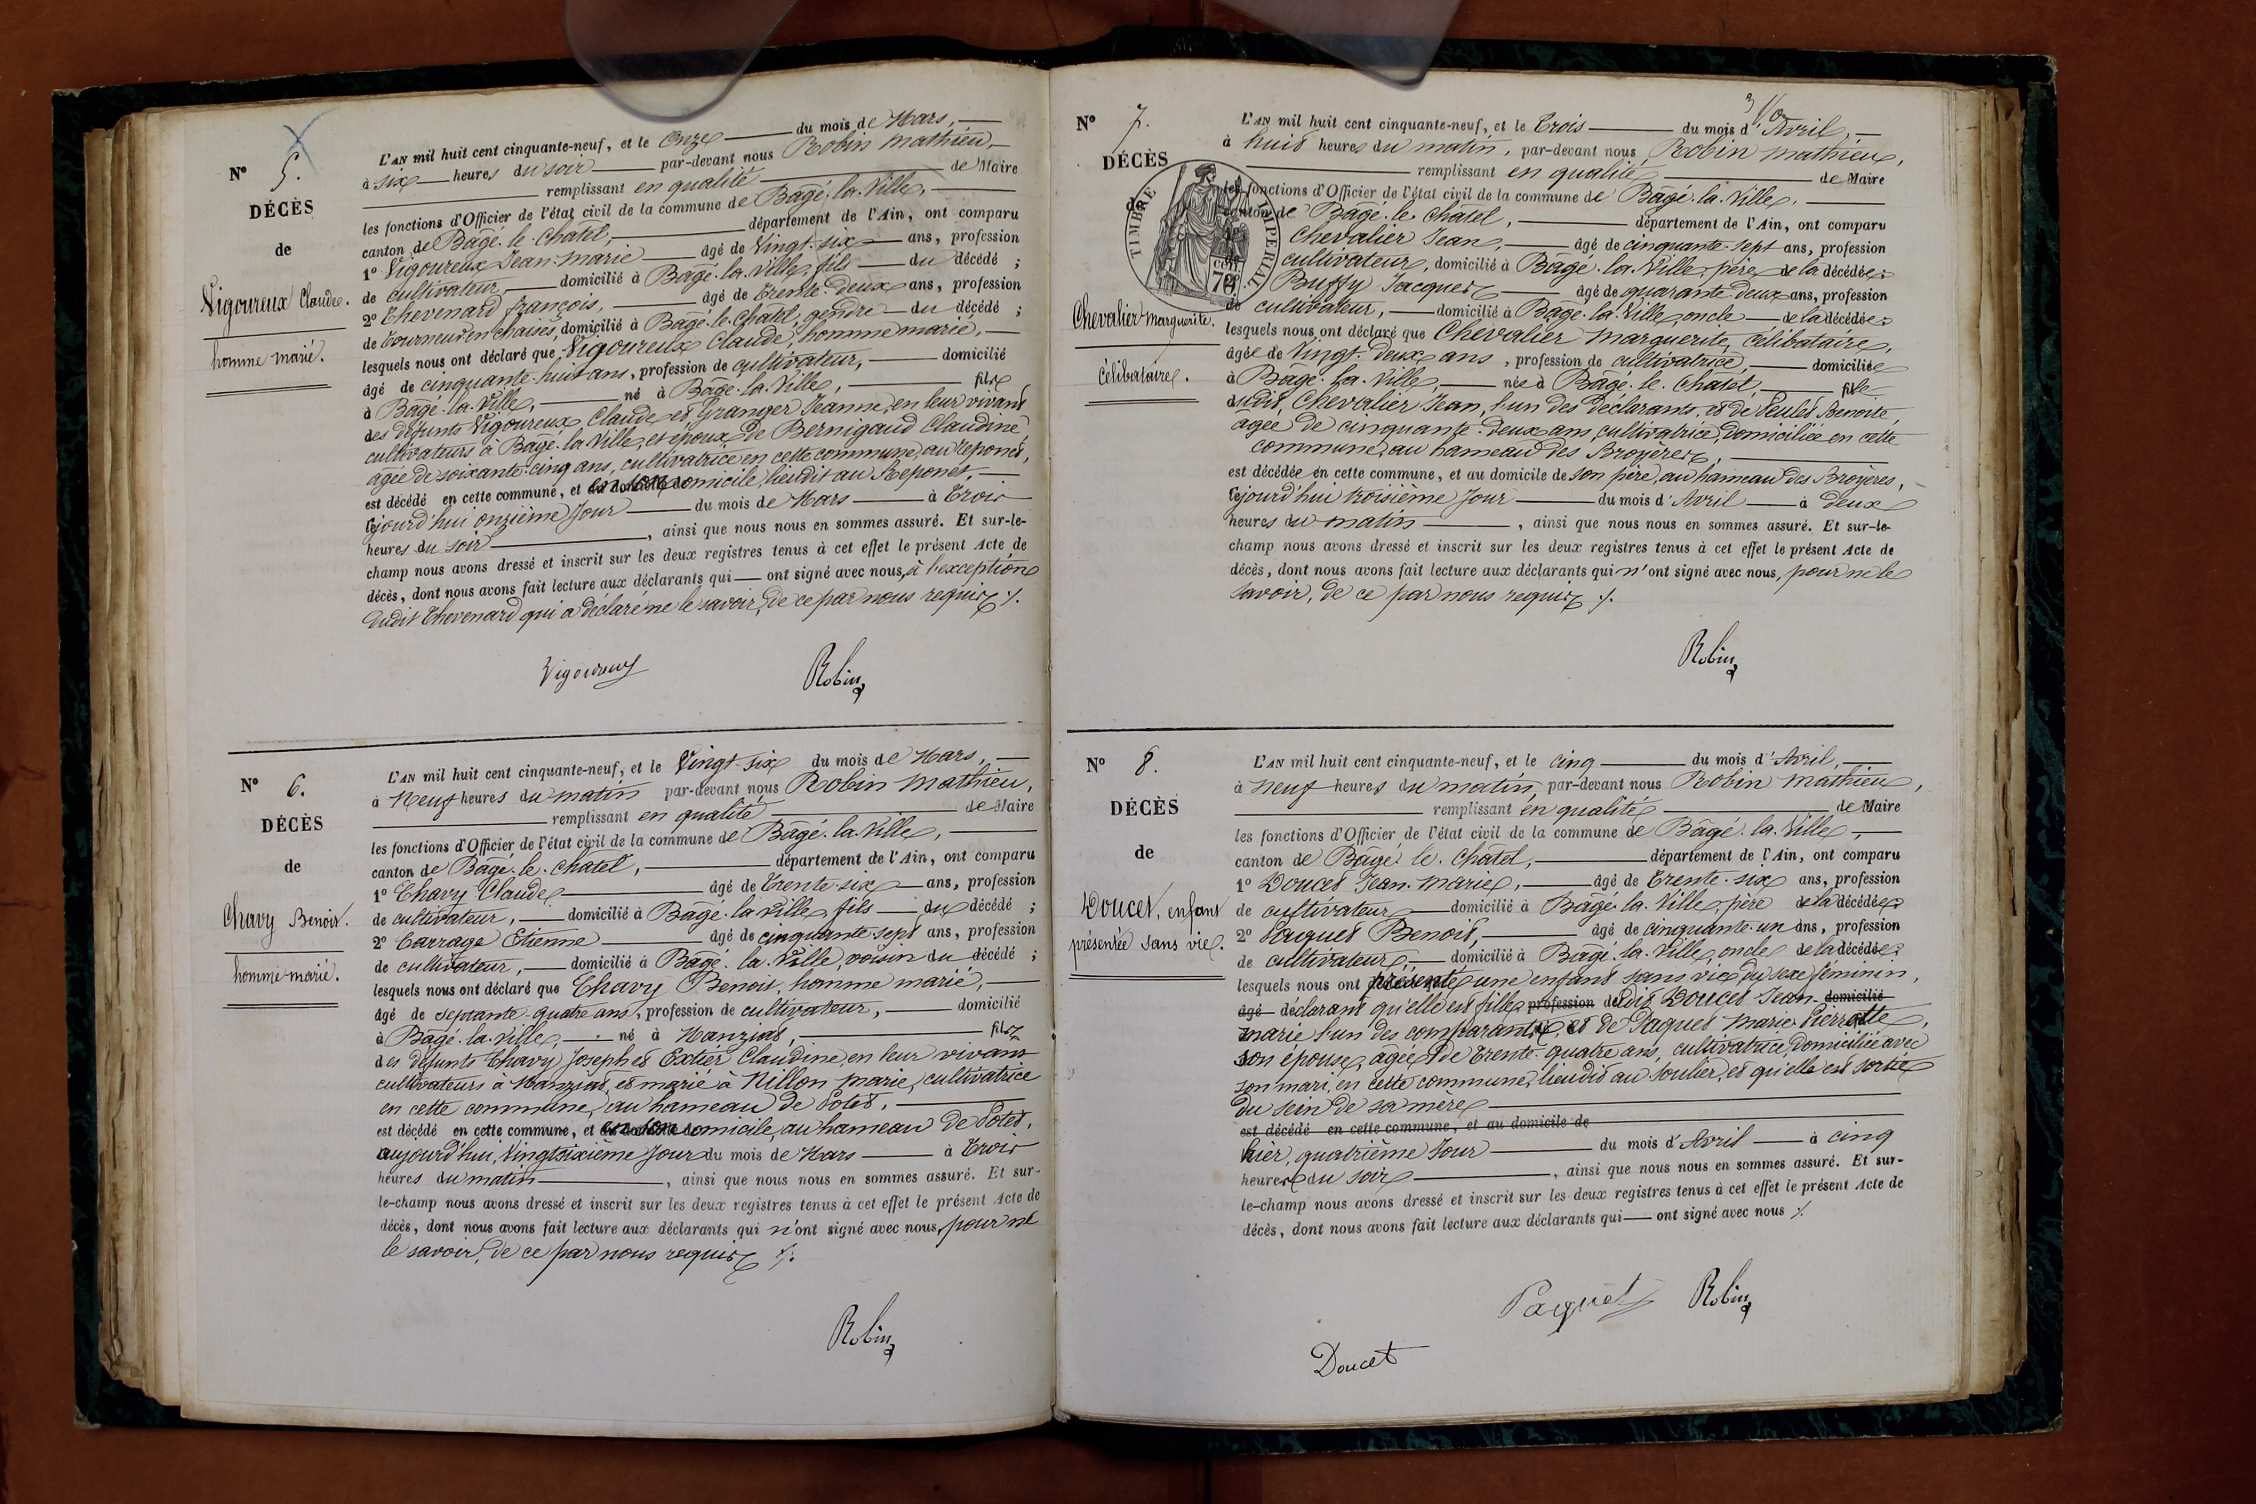 N° 5.
DÉCÈS
de
Vigoureux Claude.
homme marié.
L'AN mil huit cent cinquante-neuf, et le onze du mois de Mars,
à six heures du soir par-devant nous Robin Mathieu,
remplissant en qualité de Maire
les fonctions d'Officier de l'état civil de la commune de Bâgé-la-Ville,
canton de Bâgé-le-Châtel, département de l'Ain, ont comparu
1° Vigoureux Jean-Marie âgé de Vingt-six ans, profession
de cultivateur, domicilié à Bâgé-la-Ville, fils du décédé ;
2° Thevenard françois, âgé de trente-deux ans, profession
de tourneur en chaises, domicilié à Bâgé-le-Châtel, gendre du décédé ;
lesquels nous ont déclaré que Vigoureux Claude, homme marié,
âgé de cinquante-huit ans, profession de cultivateur, domicilié
à Bâgé-la-Ville, né à Bâgé-la-Ville, fils
des défunts Vigoureux Claude et Granger Jeanne, en leur vivant
cultivateurs à Bâgé-la-Ville, et époux de Bernigaud Claudine
âgée de soixante-cinq ans, cultivatrice en cette commune, au Reponet,
est décédé en cette commune, et en son domicile, lieu dit au Reponet,
cejourd'hui onzième jour du mois de Mars à trois
heures du soir, ainsi que nous nous en sommes assuré. Et sur-le-
champ nous avons dressé et inscrit sur les deux registres tenus à cet effet le présent Acte de
décès, dont nous avons fait lecture aux déclarants qui ont signé avec nous, à l'exception
dudit Thevenard qui a déclaré ne le savoir, de ce par nous requis ./.
Vigoureux Robin
N° 6.
DÉCÈS
de
Chavy Benoit.
homme marié.
L'AN mil huit cent cinquante-neuf, et le Vingt-six du mois de Mars,
à Neuf heures du matin par-devant nous Robin Mathieu,
remplissant en qualité de Maire
les fonctions d'Officier de l'état civil de la commune de Bâgé-la-Ville,
canton de Bâgé-le-Châtel, département de l'Ain, ont comparu
1° Chavy Claude âgé de trente-six ans, profession
de cultivateur, domicilié à Bâgé-la-Ville, fils du décédé ;
2° Carrage Etienne âgé de cinquante-sept ans, profession
de cultivateur, domicilié à Bâgé-la-Ville, voisin du décédé ;
lesquels nous ont déclaré que Chavy Benoit, homme marié,
âgé de septante-quatre ans, profession de cultivateur, domicilié
à Bâgé-la-Ville, né à Manziat, fils
des défunts Chavy Joseph et Claudine, en leur vivant
cultivateurs à Manziat, et marié à Nillon Marie, cultivatrice
en cette commune, au hameau de Potet,
est décédé en cette commune, et en son domicile, au hameau de Potet,
aujourd'hui, Vingt sixième jour du mois de Mars à trois
heures du matin, ainsi que nous nous en sommes assuré. Et sur-
le-champ nous avons dressé et inscrit sur les deux registres tenus à cet effet le présent Acte de
décès, dont nous avons fait lecture aux déclarants qui n'ont signé avec nous, pour ne
le savoir, de ce par nous requis ./.
Robin
N° 7.
DÉCÈS
de
Chevalier Marguerite.
célibataire.
TIMBRE IMPÉRIAL
L'AN mil huit cent cinquante-neuf, et le trois du mois d'Avril,
à huit heures du matin, par-devant nous Robin Mathieu,
remplissant en qualité de Maire
les fonctions d'Officier de l'état civil de la commune de Bâgé-la-Ville,
canton de Bâgé-le-Châtel, département de l'Ain, ont comparu
Chevalier Jean, âgé de cinquante-sept ans, profession
cultivateur, domicilié à Bâgé-la-Ville, père de la décédée ;
Buffy Jacques âgé de quarante-deux ans, profession
de cultivateur, domicilié à Bâgé-la-Ville, oncle de la décédée ;
lesquels nous ont déclaré que Chevalier Marguerite, célibataire,
âgée de Vingt-deux ans, profession de cultivatrice, domiciliée
à Bâgé-la-Ville, née à Bâgé-le-Châtel, fille
dudit, Chevalier Jean, l'un des déclarants, et de Benoite,
âgée de cinquante-deux ans, cultivatrice, domiciliée en cette
commune, au hameau des Broyères,
est décédée en cette commune, et au domicile de son père, au hameau des Broyères,
cejourd'hui troisième jour du mois d'Avril à deux
heures du matin, ainsi que nous nous en sommes assuré. Et sur-le-
champ nous avons dressé et inscrit sur les deux registres tenus à cet effet le présent Acte de
décès, dont nous avons fait lecture aux déclarants qui n'ont signé avec nous, pour ne le
savoir, de ce par nous requis ./.
Robin
N° 8.
DÉCÈS
de
Doucet, enfant
présentée sans vie.
L'AN mil huit cent cinquante-neuf, et le cinq du mois d'Avril,
à neuf heures du matin, par-devant nous Robin Mathieu,
remplissant en qualité de Maire
les fonctions d'Officier de l'état civil de la commune de Bâgé-la-Ville,
canton de Bâgé-le-Châtel, département de l'Ain, ont comparu
1° Doucet Jean-Marie, âgé de trente-six ans, profession
de cultivateur domicilié à Bâgé-la-Ville, père de la décédée
2° Paquet Benoit, âgé de cinquante-un ans, profession
de cultivateur, domicilié à Bâgé-la-Ville, oncle de la décédée
lesquels nous ont présenté une enfant sans vie, du sexe féminin,
âgé déclarant qu'elle est fille profession dudit Doucet Jean- domicilié
Marie l'un des comparants et de Paquet Marie Pierrette,
son épouse, âgée de trente-quatre ans, cultivatrice, domiciliée avec
son mari, en cette commune, lieudit au Soulier, et qu'elle est sortie
du sein de sa mère
est décédé en cette commune, et au domicile de
hier, quatrième jour du mois d'Avril à cinq
heures du soir, ainsi que nous nous en sommes assuré. Et sur-
le-champ nous avons dressé et inscrit sur les deux registres tenus à cet effet le présent Acte de
décès, dont nous avons fait lecture aux déclarants qui ont signé avec nous ./.
Paquet Robin
Doucet